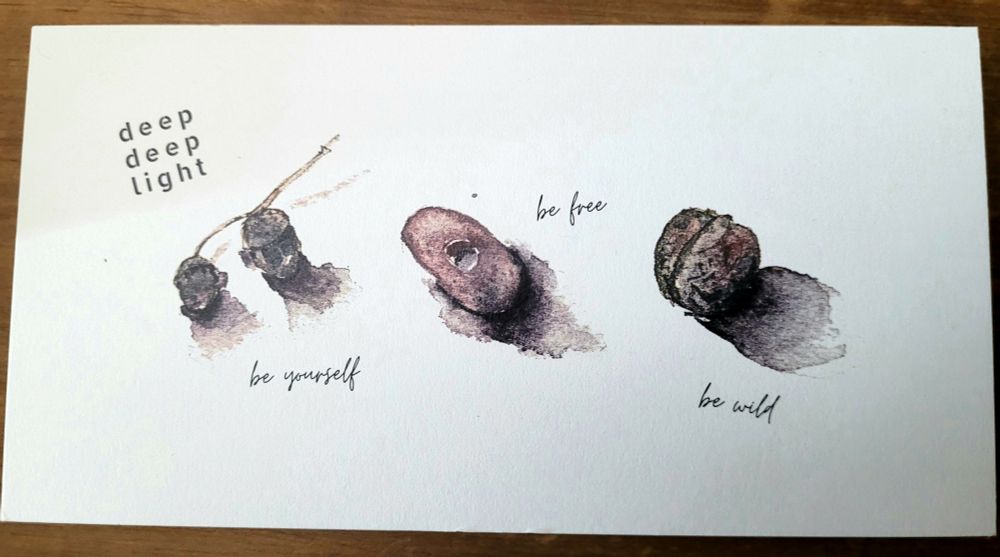 deep
deep
light
be free
be yourself
be wild